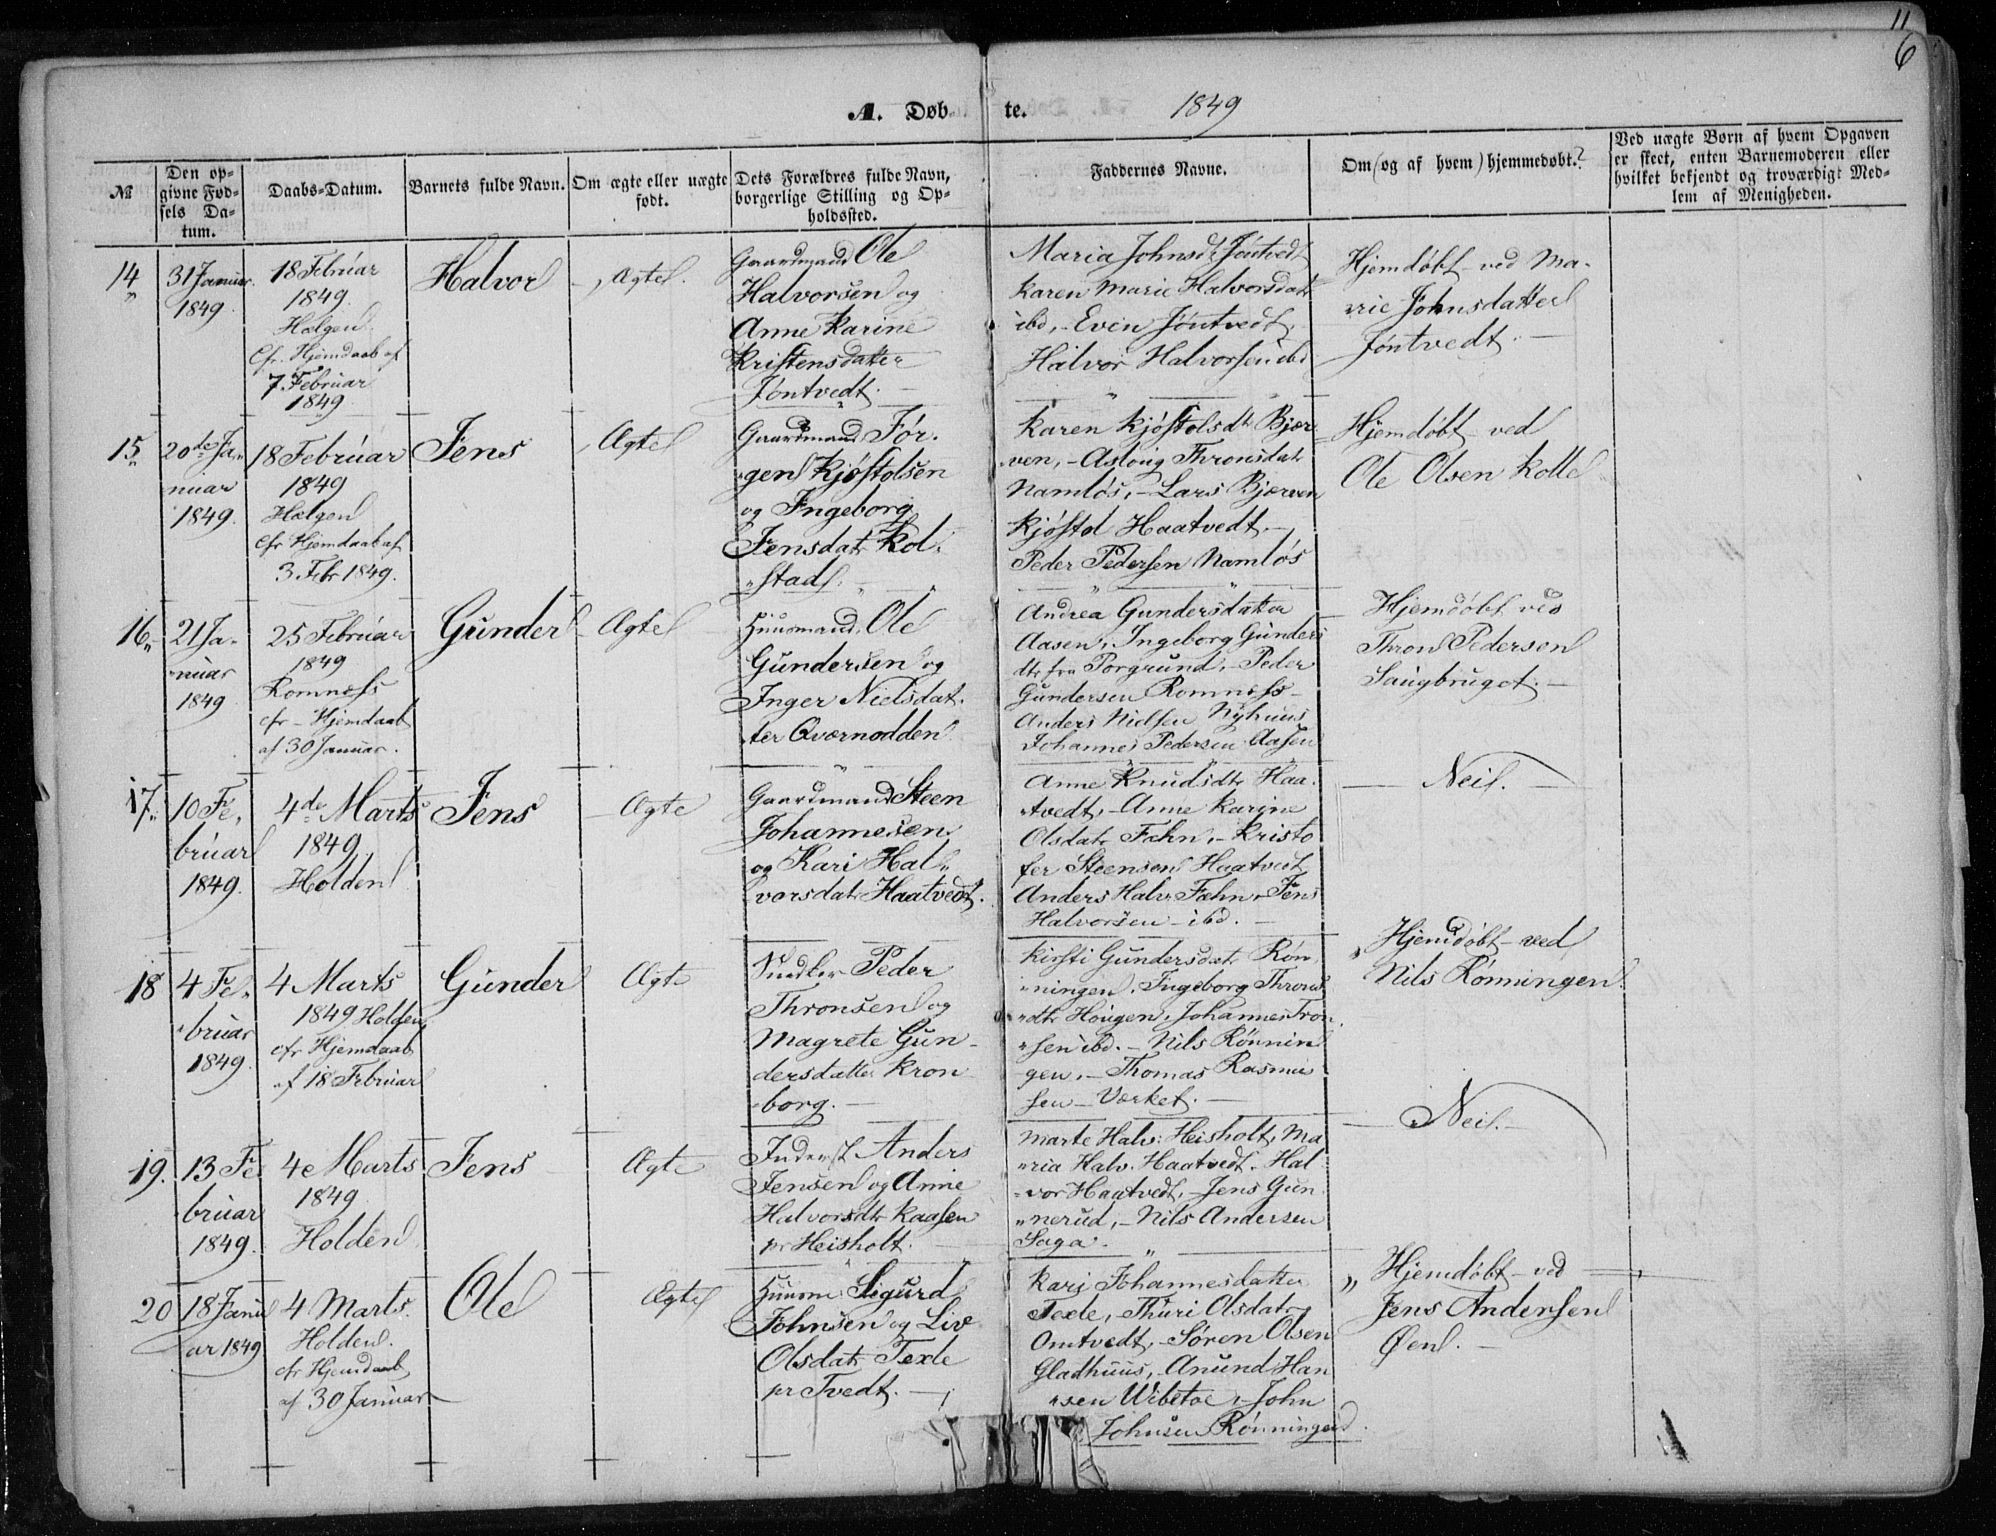 11
6
A. Døb te. 1849
№
Den op-
givne Fød-
sels Da-
tum.
Daabs-Datum.
Barnets fulde Navn.
Om ægte eller uægte
født.
Dets Forældres fulde Navn,
borgerlige Stilling og Op-
holdssted.
Faddernes Navne.
Om (og af hvem) hjemmedøbt?
Ved uægte Børn af hvem Opgaven
er skeet, enten Barnemoderen eller
hvilket bekjendt og troværdigt Med-
lem af Menigheden.
14
31 Januar
1849
18 Februar
1849.
Helgen
Cfr. Hjemdaab af
7. Februar
1849
Halvor
Ægte
Gaardmand Ole
Halvorsen og
Anne Karine
Kristensdatter
Jøntvedt.
Maria Johnsdt Jøntvedt
Karen Marie Halvorsdatr
ibd, - Even Jøntvedt,
Halvor Halvorsen ibd
Hjemdøbt ved Ma-
rie Johnsdatter
Jøntvedt.
15
20de Ja-
nuar
1849.
18 Februar
1849
Helgen
cfr Hjemdaab af
3. Febr 1849.
Jens
Ægte
Gaardmand Jør-
gen Kjøstolsen
og Ingeborg
Jensdatr Kol-
stad.
Karen Kjøstolsdtr Bjer-
ven, - Asloug Thronsdatr
Namløs, - Lars Bjerven
Kjøstol Haatvedt. -
Peder Pedersen Namløs
Hjemdøbt ved
Ole Olsen Kolte
16
21 Ja-
nuar
1849
25 Februar
1849
Romness
cfr - Hjemdaab
af 30 Januar.
Gunder
Ægte
Huusmand Ole
Gundersen og
Inger Nielsdat-
ter Qvernodden
Andrea Gundersdatter
Aasen, Ingeborg Gunders
dtr fra Porgrund, - Peder
Gundersen Romness -
Anders Nielsen Nyhuus
Johannes Pedersen Aasen
Hjemdøbt ved
Thron Pedersen
Saugbruget. -
17
10 Fe-
bruar
1849.
4de Marts
1849.
Holden
Jens
Ægte
Gaardmand Steen
Johannesen
og Kari Hal-
vorsdatr Haatvedt.
Anne Knudsdtr Haa-
tvedt, - Anne Karine
Olsdatr Fæhn, - Kristo
fer Steensen Haatvedt
Anders Halv: Fæhn, Jens
Halvorsen - ibd. -
Neil. -
18
4 Fe-
bruar
1849
4 Marts
1849 Holden
cfr Hjemdaab
af 18 Februar
Gunder
Ægte
Snedker Peder
Thronsen og
Magrete Gun-
dersdatter Kron-
borg. -
Kirsti Gundersdatr Røn-
ningen, Ingeborg Throns
dtr Hougen, Johannes Tron
sen ibd. - Nils Rønnin
gen. - Thomas Rasmus
sen - Værket. -
Hjemdøbt ved
Nils Rønningen
19.
13 Fe-
bruar
1849.
4e Marts
1849
Holden
Jens
Ægte
Inderst Anders
Jensen og Anne
Halvorsdtr Kaasen
pr Heisholt.
Marte Halv: Heisholt, Ma
ria Halv. Haatvedt. Hal
vor Haatvedt, - Jens Gun
nerud, - Nils Andersen
Saga.
Neil. -
20
18 Janu
ar 1849
4 Marts.
Holden.
cfr Hjemdaab
af 30 Januar
Ole
Ægte
Huusm: Sigurd
Johnsen og Liv
Olsdatr Texle
pr Tvedt. -
Karj Johannesdatter
Texle, Thuri Olsdatr
Omtvedt, - Søren Olsen
Gladhuus, Anund Han
sen Wibetoe, - John
Johnsen Rønningen.
Hjemdøbt ved
Jens Andersen
Øen. -